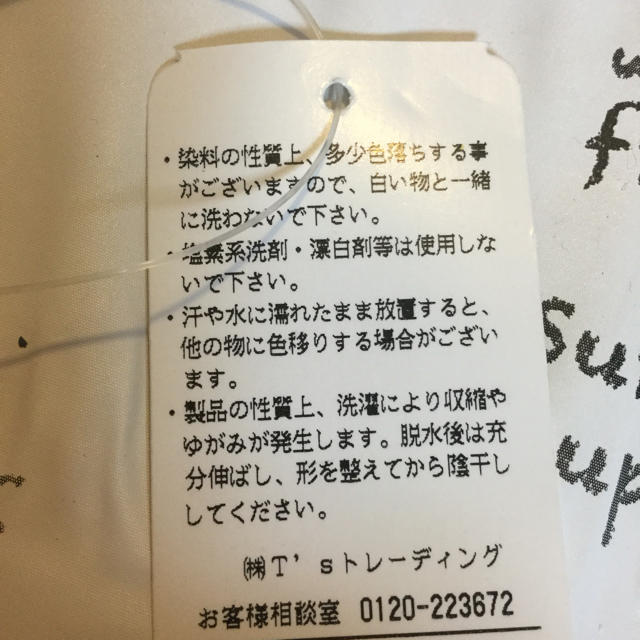 ・染料の性質上、多少色落ちする事
がございますので、白い物と一緒
に洗わないで下さい。
・塩素系洗剤・漂白剤等は使用しな
いで下さい。
・汗や水に濡れたまま放置すると、
他の物に色移りする場合がござい
ます。
・製品の性質上、洗濯により収縮や
ゆがみが発生します。脱水後は充
分伸ばし、形を整えてから陰干し
してください。
㈱T'sトレーディング
お客様相談室 0120-223672
up